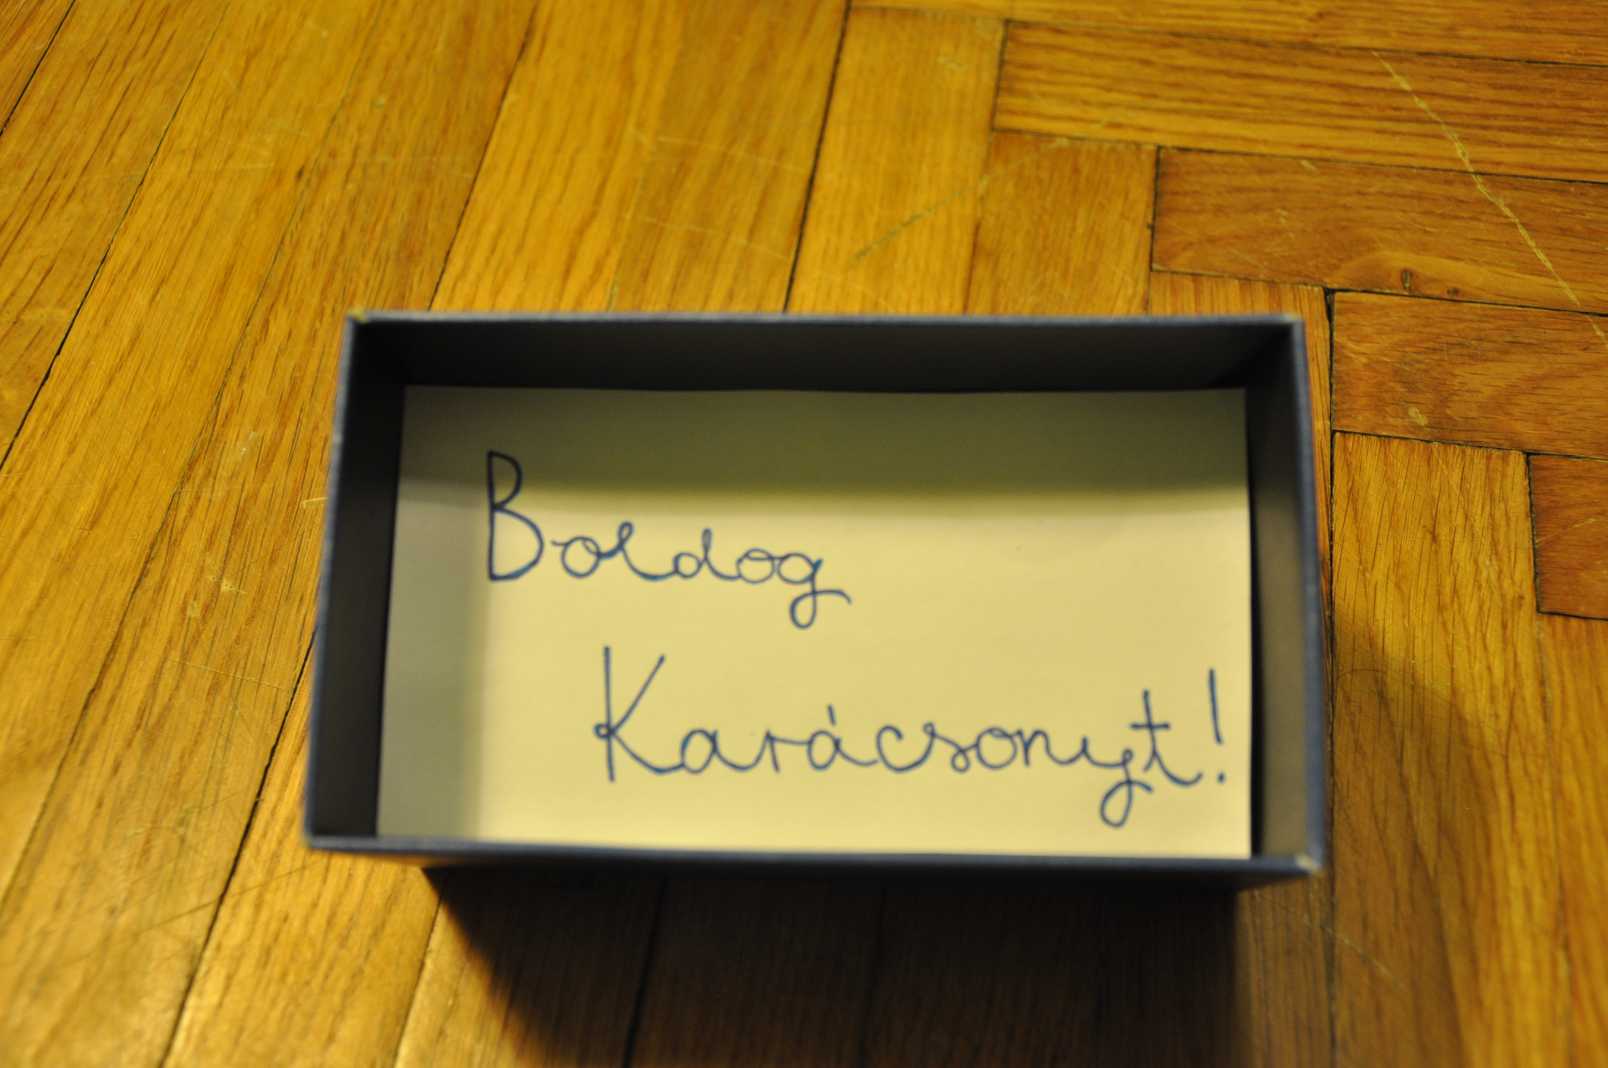 Boldog
Karácsonyt!